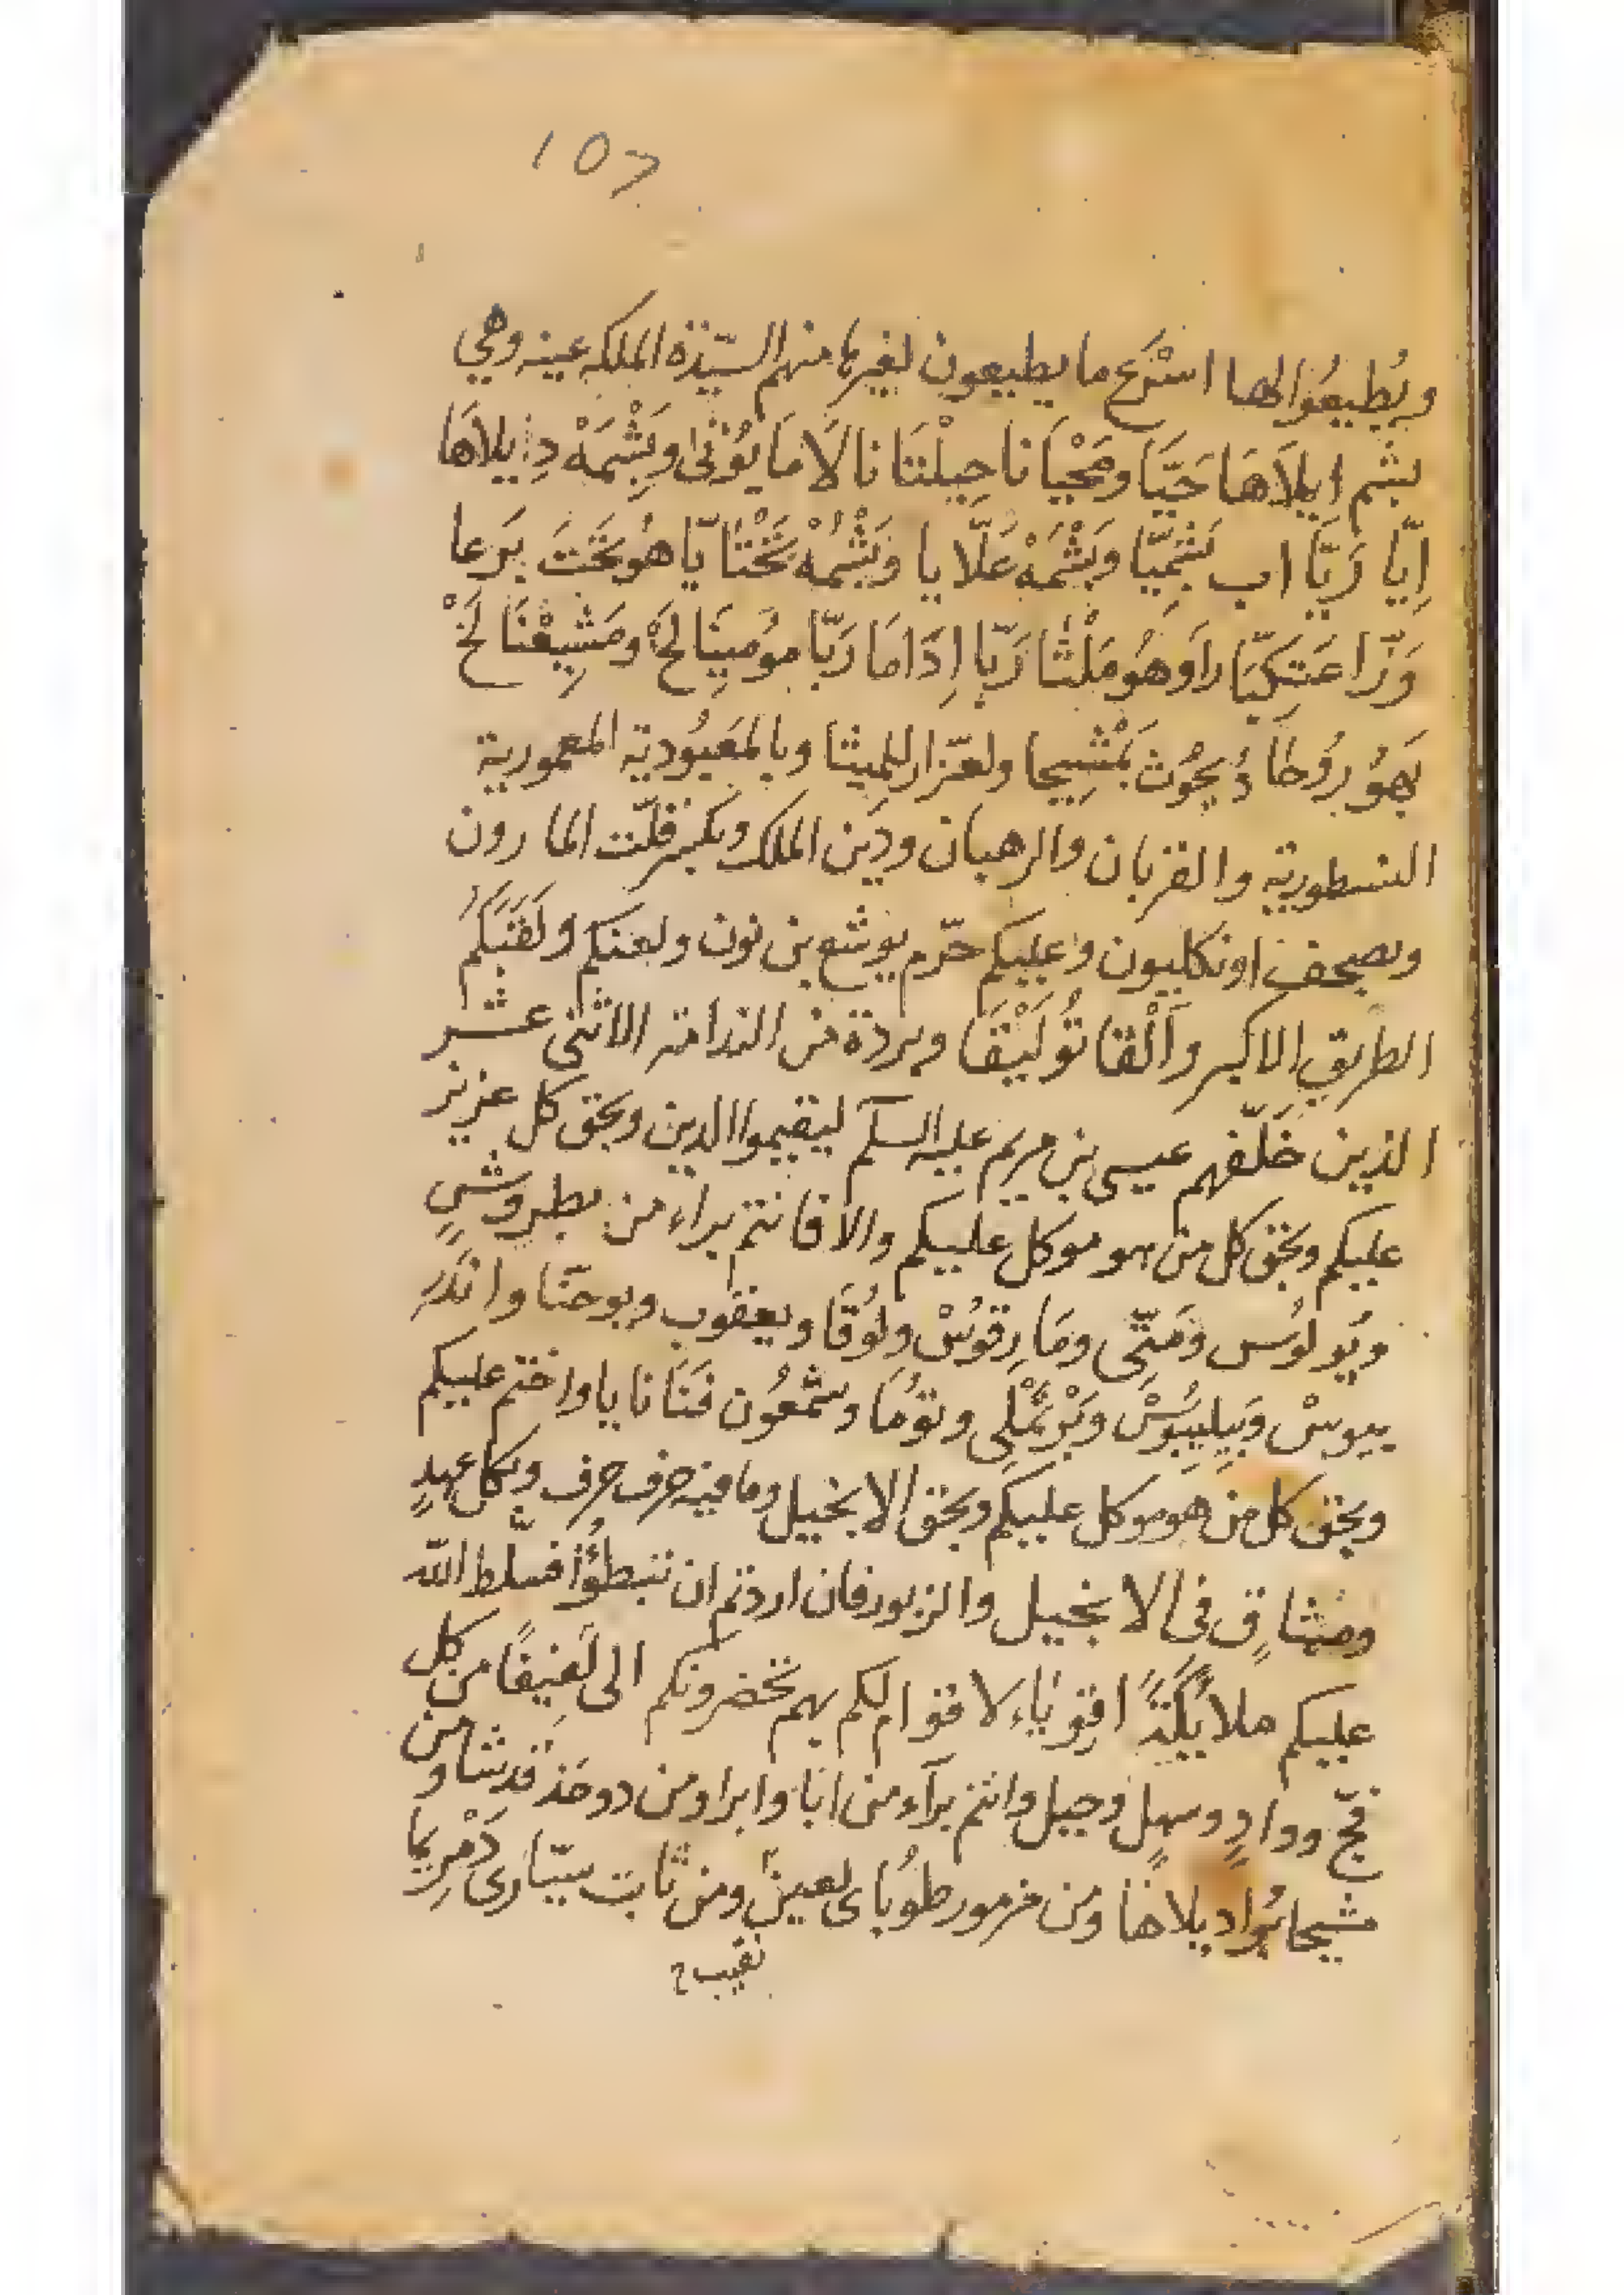 107
ويُطيعُوا لها اسْرَع ما يطيعون لغيرها منهم السّيّدة الملكه عينه وهي
بشم ايلاَهَا حَيَّا ومَحْيَا نا جِبلْتَنا نا لَا مَا يُؤتى وبَشْمَهْ دِايلاهَا
اِيّا رَيَّا اب بَشمَيّا وبَشْمَهْ عَلّايا وبَشْمُهْ تَحْتَا يّا هُو تَحَتَ بَرعا
وَرّا عَتِكَيّا راَوهُو مَلْثا رَبّا اِدَامَا رَبّا مومُينَا لحَ ومَشِيعْنَا لَخْ
بَهوُ رُوُحا دُ يحوُث بَمْشِيحا ولعَزار لِلميثا وبالمَعبُودية المعمورية
النسطورية والقربان والرهبان ودَين الملك وبكبر قلّت المارون
وبصحف اونكليون وعليكم حرّم يوشع بن نون ولعنكم ولَقّبَكُم
الطريق الاكبر وَاَلْقا تُولَيْتَقَا وبردة من التدامة الاثنى عشر
الذين خَلّفهم عيسى بن مريم عليه السلم ليقيموا الدين وبحق كل عزيز
عليكم وبحق كل من هو موكل عليكم والا فانتم براء من بطروشي
وبَولوُس ومَتّى ومَارِقوُسْ ولوُقَا ويعقوب ويوحَنّا وانَدَر
يبوسْ وَبيلِيبوُسْ وَبَرْتُمْلِى وتوُمَا وشمعُون قنَانا يا واختم عليكم
وبحق كل من هو موكل عليكم وبحق الانجيل وما فيه حرف حرف وبكل عهدٍ
وميثاقٍ فى الانجيل والزبور فان اردتم ان تبطؤا فسلط الله
عليكم ملائكَةً اقوياء لا قوام لكم بهم تحضرونكم الى لَفِيفًا من كل
فجّ ووادٍ وسهلٍ وجبل وانتم برآء من ابا وابرا ومن دوحَد قدشا ومن
مشيحا بُوادِيلاها ومن مزمور طُوبَاى لعين ومن ثابت سبّارى دَمْريما
نقيب